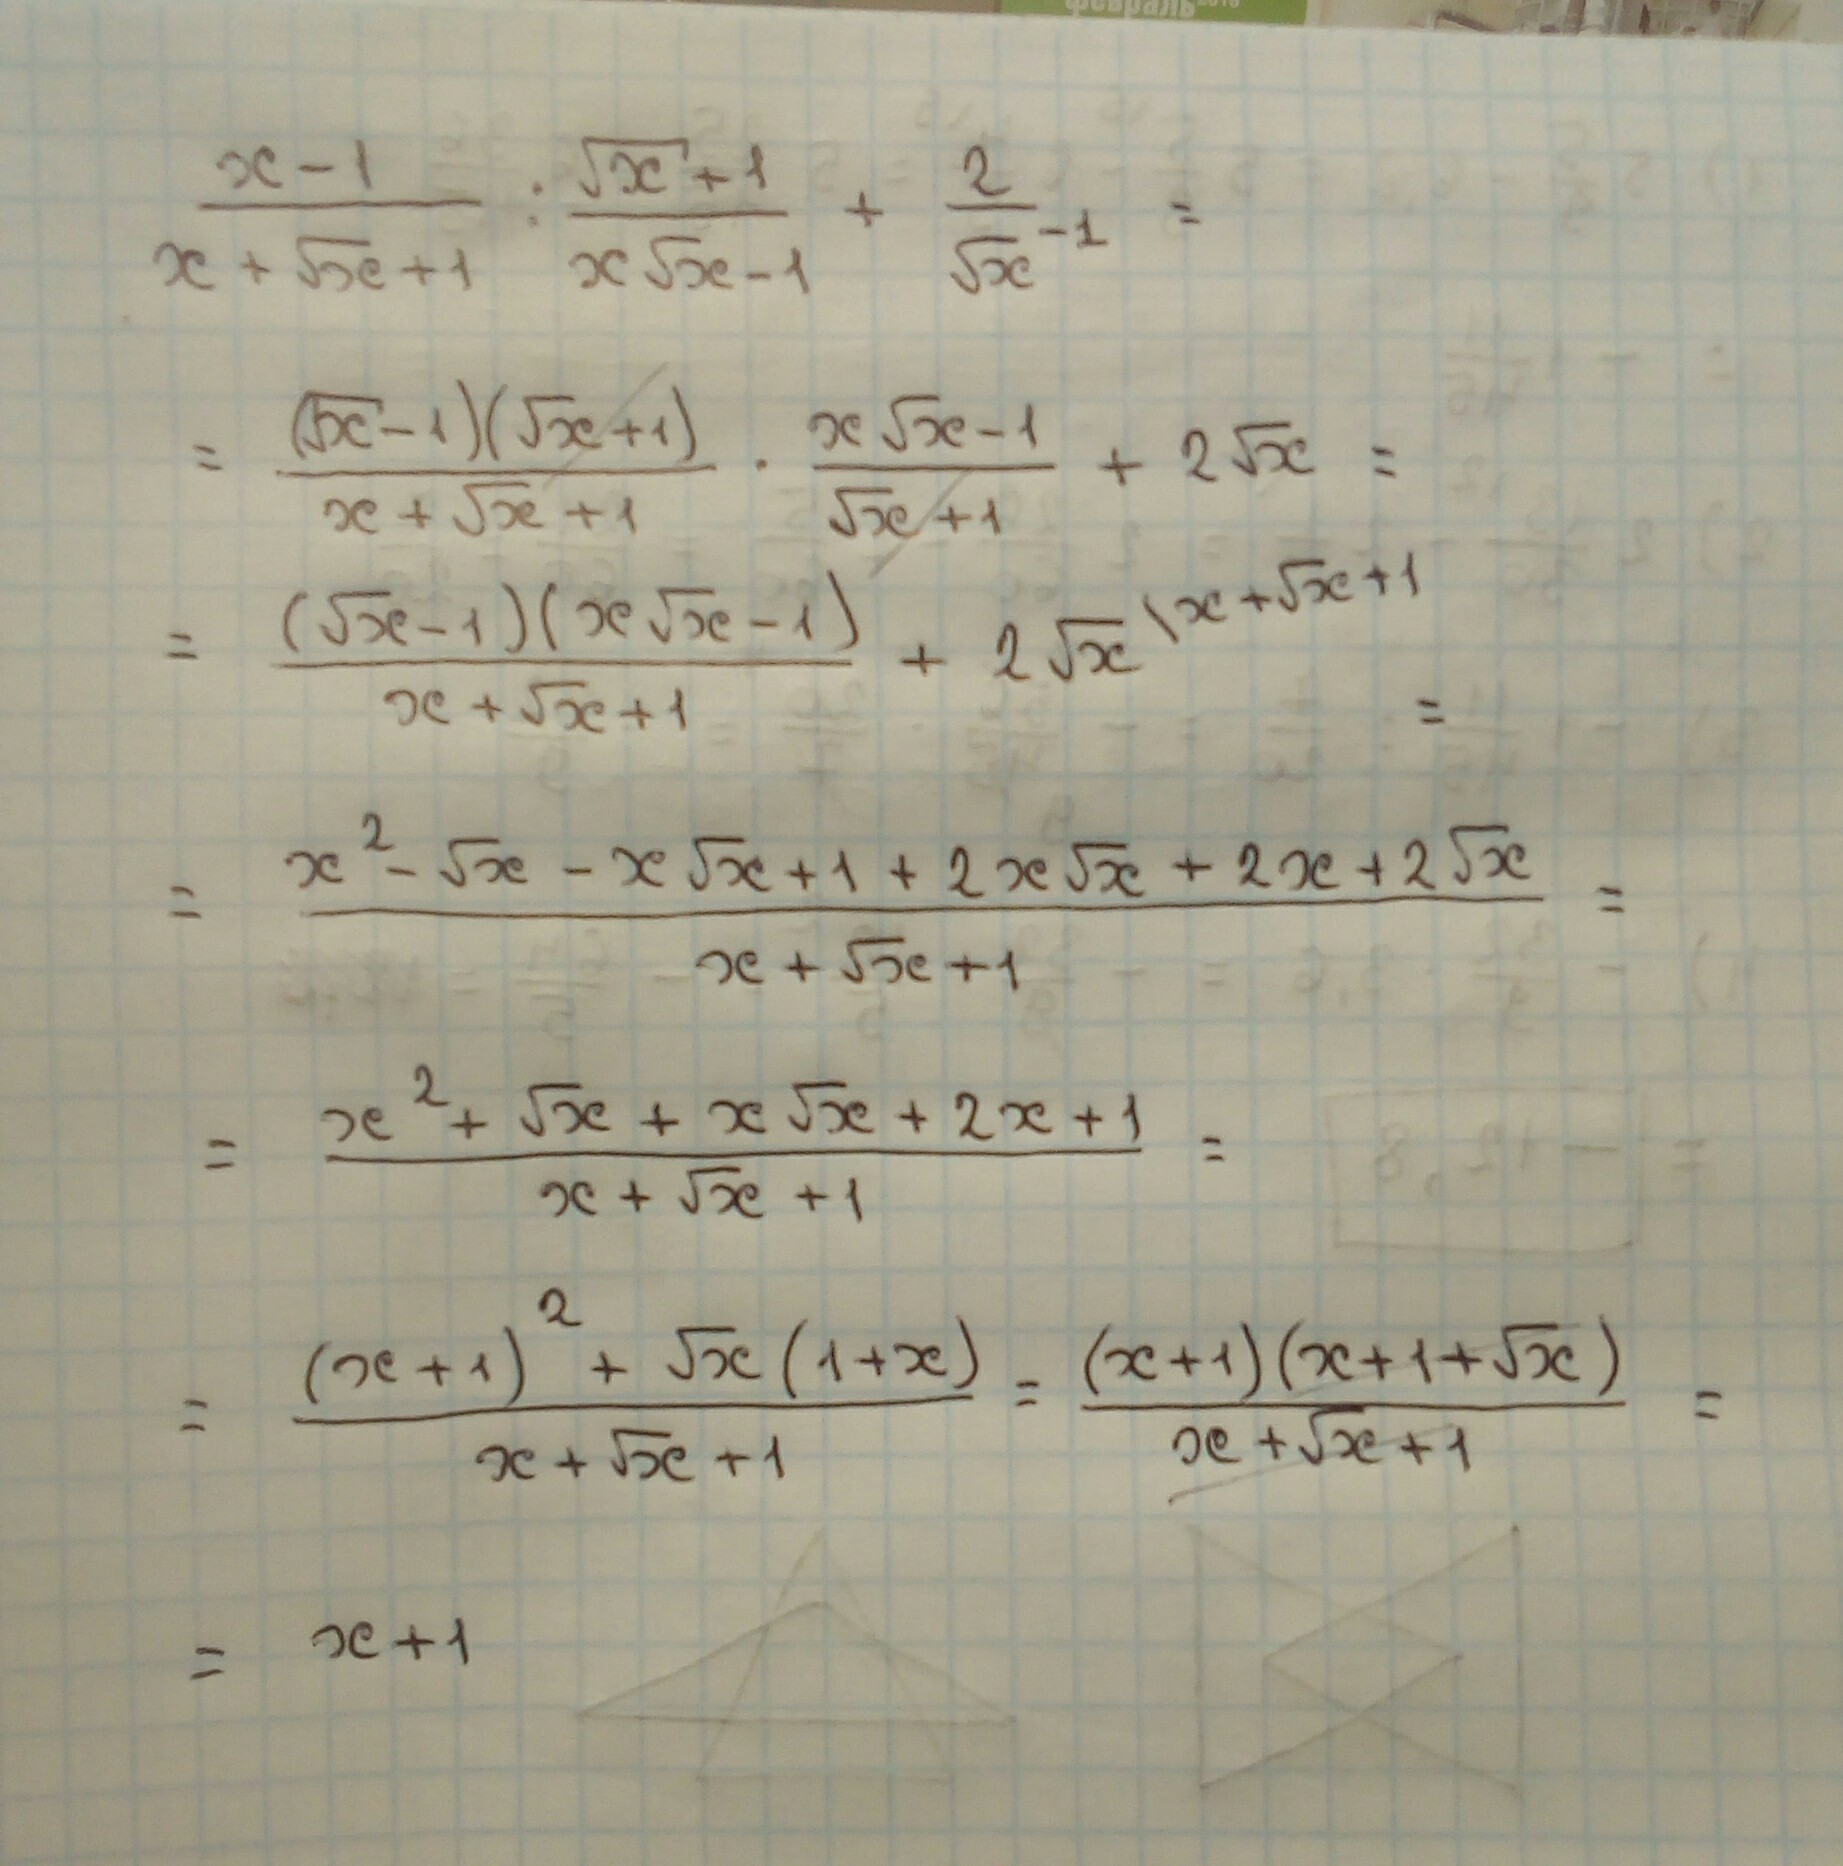 февраль 2016
(x-1)/(x+√x+1) : (√x+1)/(x√x-1) + 2/√x^-1 =
= (√x-1)(√x+1)/(x+√x+1) · (x√x-1)/(√x+1) + 2√x =
= (√x-1)(x√x-1)/(x+√x+1) + 2√x \x+√x+1 =
= (x^2-√x-x√x+1+2x√x+2x+2√x)/(x+√x+1) =
= (x^2+√x+x√x+2x+1)/(x+√x+1) =
= ((x+1)^2+√x(1+x))/(x+√x+1) = (x+1)(x+1+√x)/(x+√x+1) =
= x+1